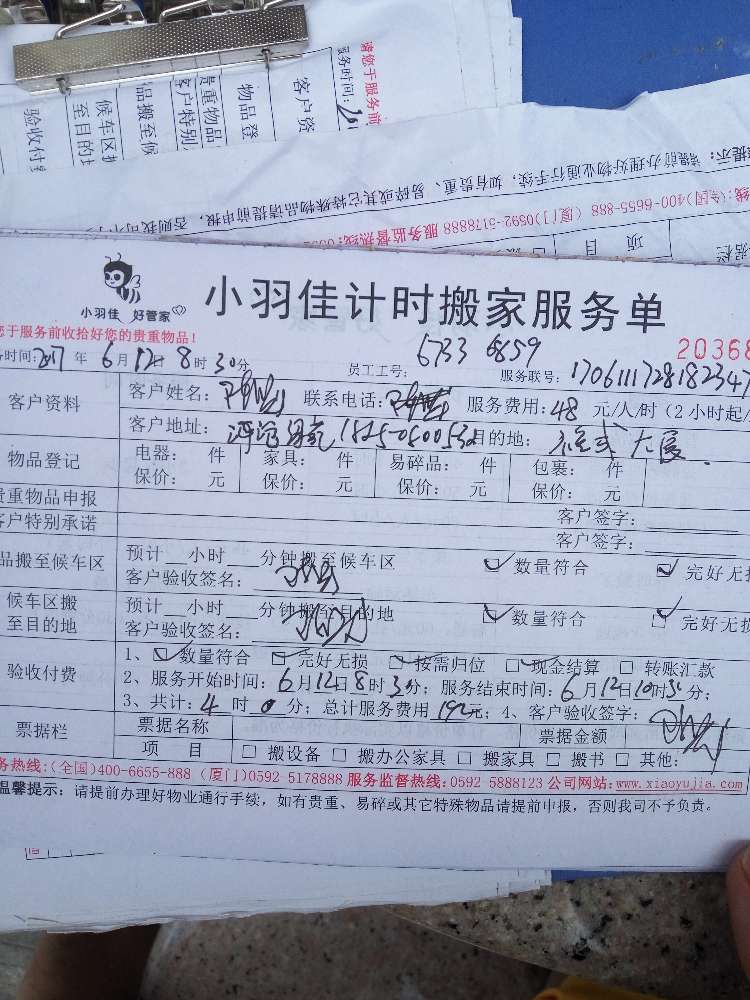 请您于服务前
服务时间:
客户资
物品登
贵重物品
客户特别
品搬至候
候车区搬
至目的地
验收付费
提示:请提前办理好物业通行手续,如有贵重、易碎或其它特殊物品请提前申报,否则我司不
线:(全国)400-6655-888 (厦门)0592-5178888 服务监督热线:0592
据栏 项 目
小羽佳 好管家
小羽佳计时搬家服务单
您于服务前收拾好您的贵重物品!
2036
务时间:2017 年 6月12日 8时30分 员工工号: 6733 6859 服务联号: 1706111728182347
客户资料 客户姓名: 联系电话: 服务费用:48 元/人/时(2小时起/
客户地址: 18250600532 目的地: 大厦
物品登记 电器: 件 家具: 件 易碎品: 件 包裹: 件
保价: 元 保价: 元 保价: 元 保价: 元
贵重物品申报 客户签字:
客户特别承诺 客户签字:
品搬至候车区 预计 小时 分钟搬至候车区 ☑ 数量符合 ☑ 完好无损
客户验收签名:
候车区搬至目的地 预计 小时 分钟搬至目的地 ☑ 数量符合 ☑ 完好无损
客户验收签名:
验收付费 1、☑ 数量符合 ☑ 完好无损 ☑ 按需归位 ☑ 现金结算 □ 转账汇款
2、服务开始时间:6月12日8时30分;服务结束时间:6月12日10时30分;
3、共计:4 时 0 分;总计服务费用 192元;4、客户验收签字:
票据栏 票据名称 票据金额
项 目 □ 搬设备 □ 搬办公家具 □ 搬家具 □ 搬书 □ 其他:
务热线:(全国)400-6655-888 (厦门)0592-5178888 服务监督热线:0592-5888123 公司网站:www.xiaoyujia.com
温馨提示:请提前办理好物业通行手续,如有贵重、易碎或其它特殊物品请提前申报,否则我司不予负责。